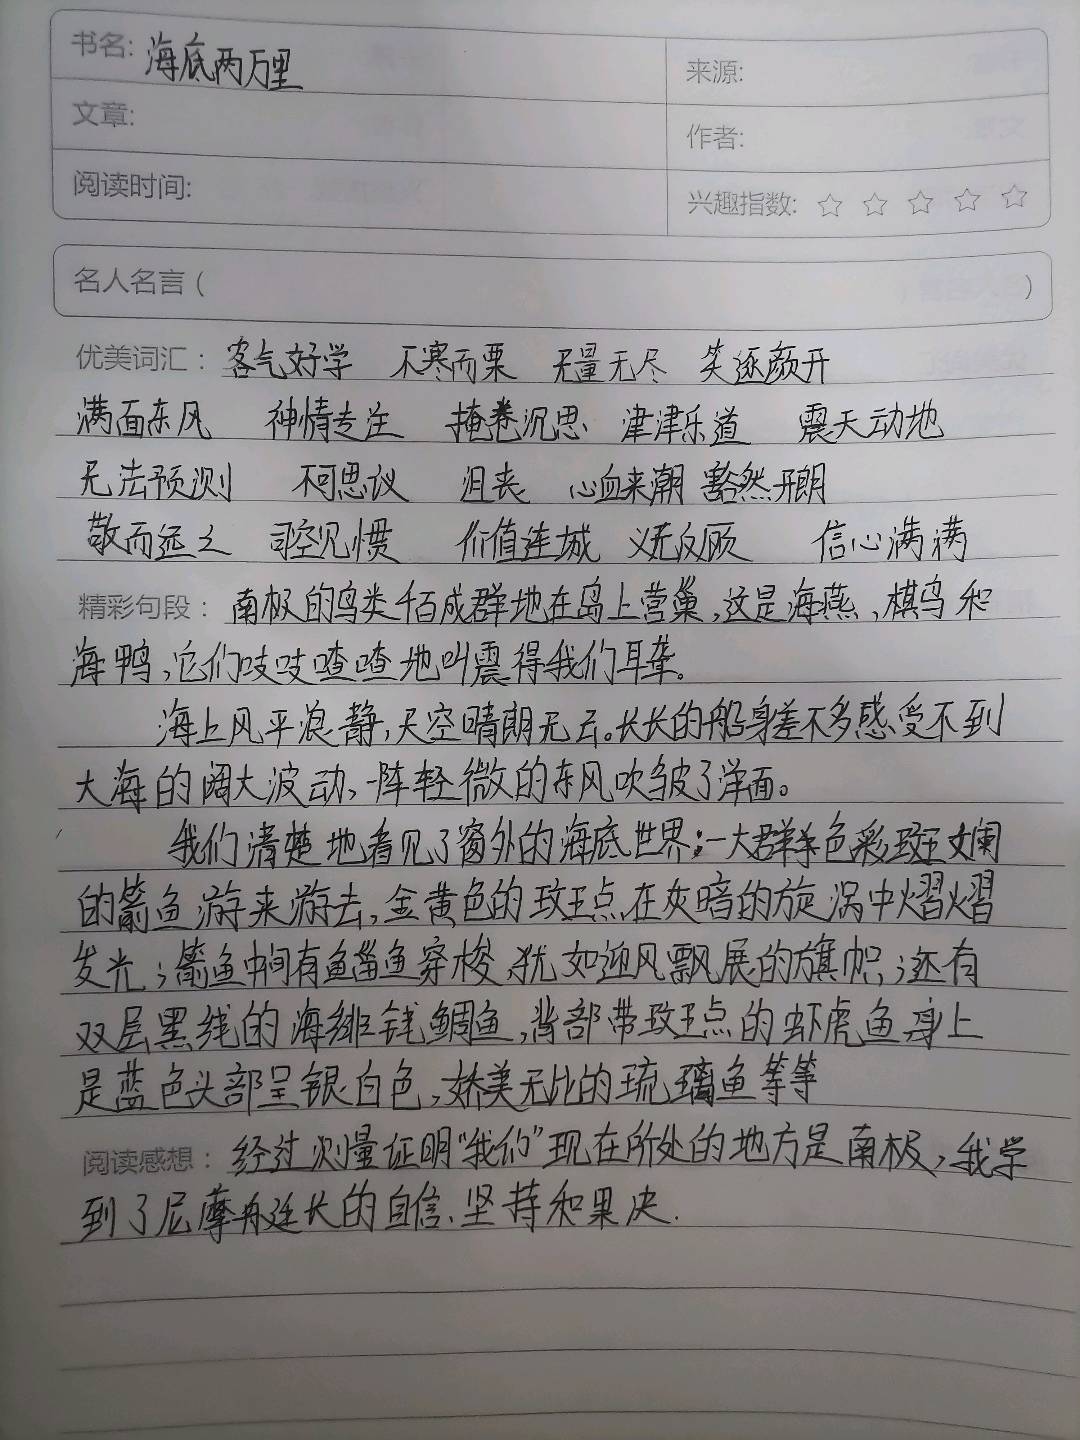 书名: 海底两万里
来源:
文章:
作者:
阅读时间:
兴趣指数: ☆ ☆ ☆ ☆ ☆
名人名言 ( )
优美词汇: 客气好学 不寒而栗 无量无尽 笑逐颜开
满面东风 神情专注 掩卷沉思 津津乐道 震天动地
无法预测 不可思议 沮丧 心血来潮 豁然开朗
敬而远之 司空见惯 价值连城 义无反顾 信心满满
精彩句段: 南极的鸟类千百成群地在岛上营巢,这是海燕、棋鸟和
海鸭,它们吱吱喳喳地叫震得我们耳聋。
海上风平浪静,天空晴朗无云。长长的船身差不多感受不到
大海的阔大波动、一阵轻微的东风吹皱了洋面。
我们清楚地看见了窗外的海底世界;一大群色彩斑斓
的箭鱼游来游去,金黄色的斑点在灰暗的旋涡中熠熠
发光;箭鱼中间有鲻鱼穿梭、犹如迎风飘展的旗帜;还有
双层黑线的海绯钱鲷鱼,背部带斑点的虾虎鱼身上
是蓝色头部呈银白色,娇美无比的琉璃鱼等等
阅读感想: 经过测量证明“我们”现在所处的地方是南极,我学
到了尼摩舟廷长的自信、坚持和果决.